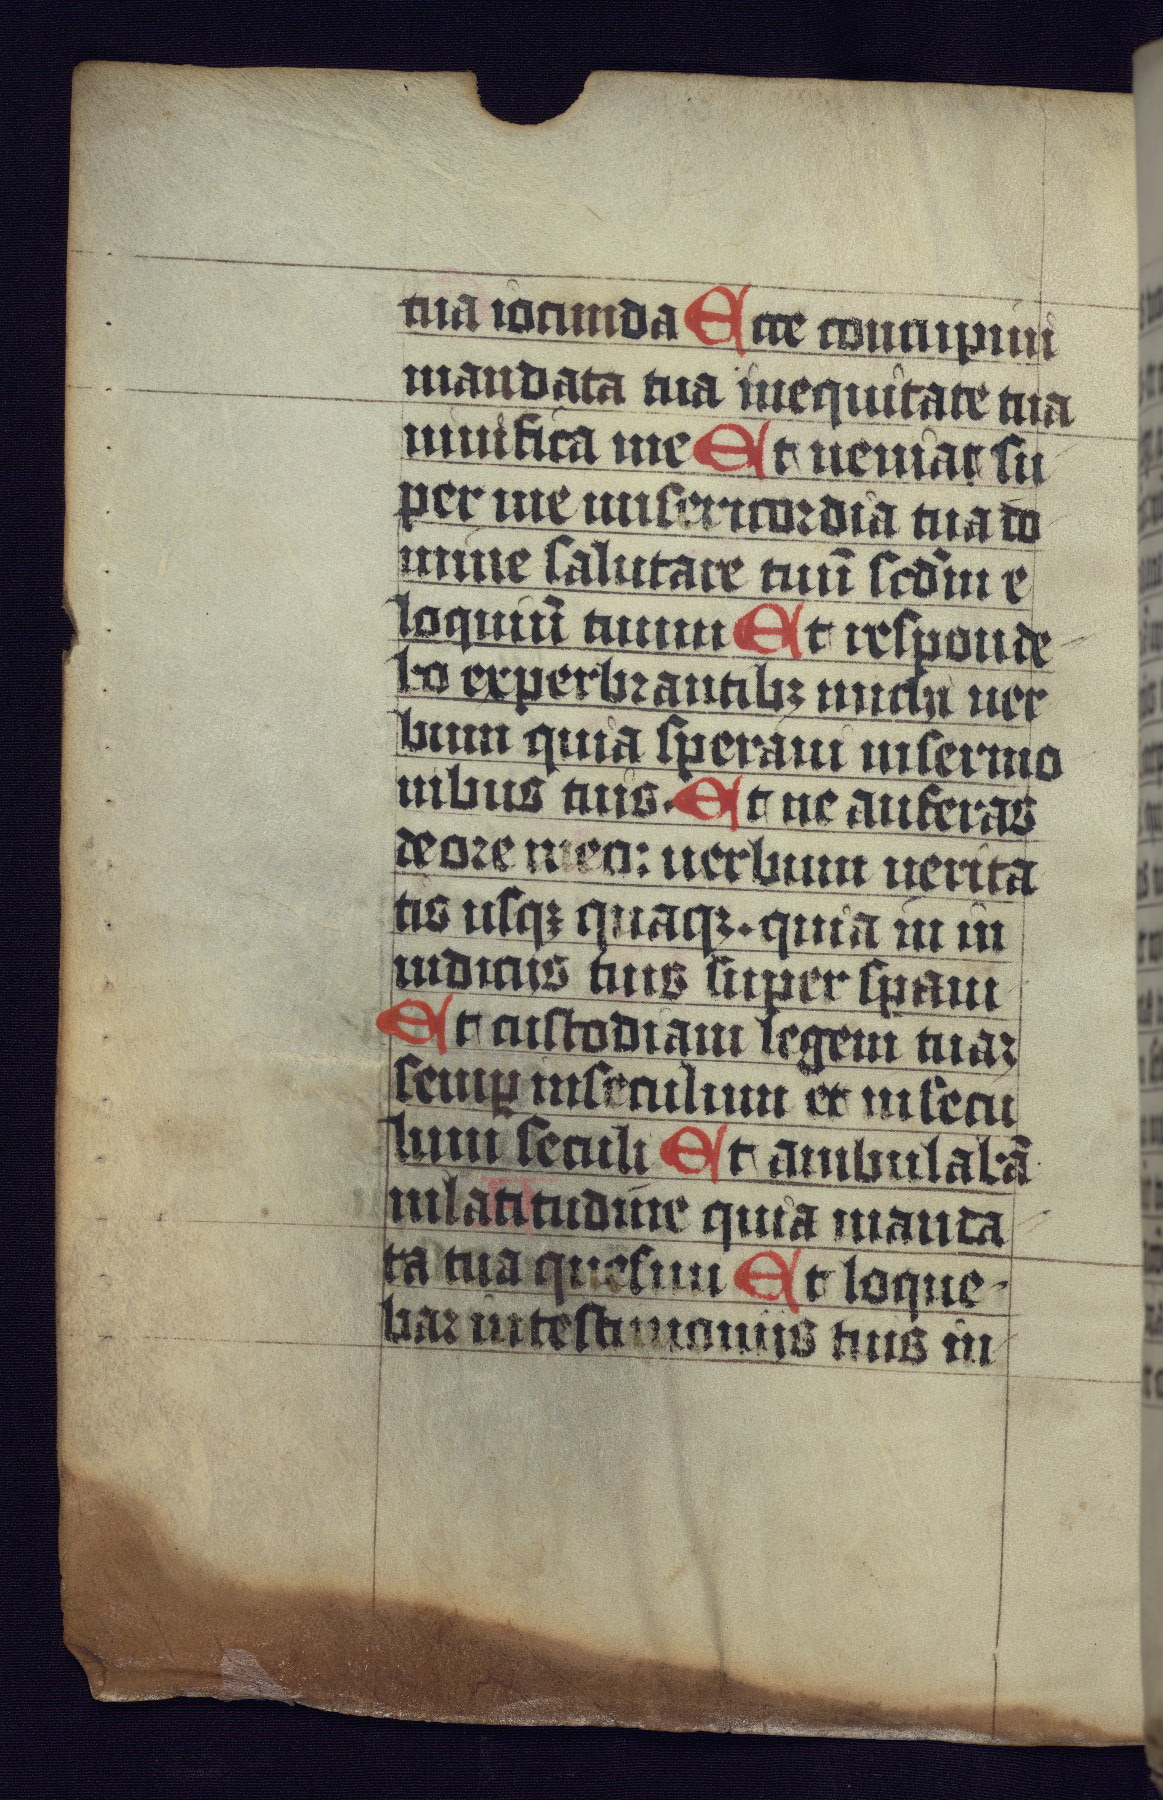 tua iocunda Ecce concupiui
mandata tua inequitate tua
uiuifica me Et ueniat su
per me misericordia tua do
mine salutare tuū scd̄m e
loquiū tuum Et responde
bo experbrantibꝫ michi uer
bum quia speraui insermo
nibus tuis. Et ne auferas
deore meo: uerbum uerita
tis usqꝫ quaqꝫ. quia in in
iudiciis tuis super spaui
Et custodiam legem tuaꝫ
semꝑ inseculum et insecu
lum seculi Et ambulabā
inlatitudine quia manda
ta tua quesiui Et loque-
bar intestimoniis tuis in